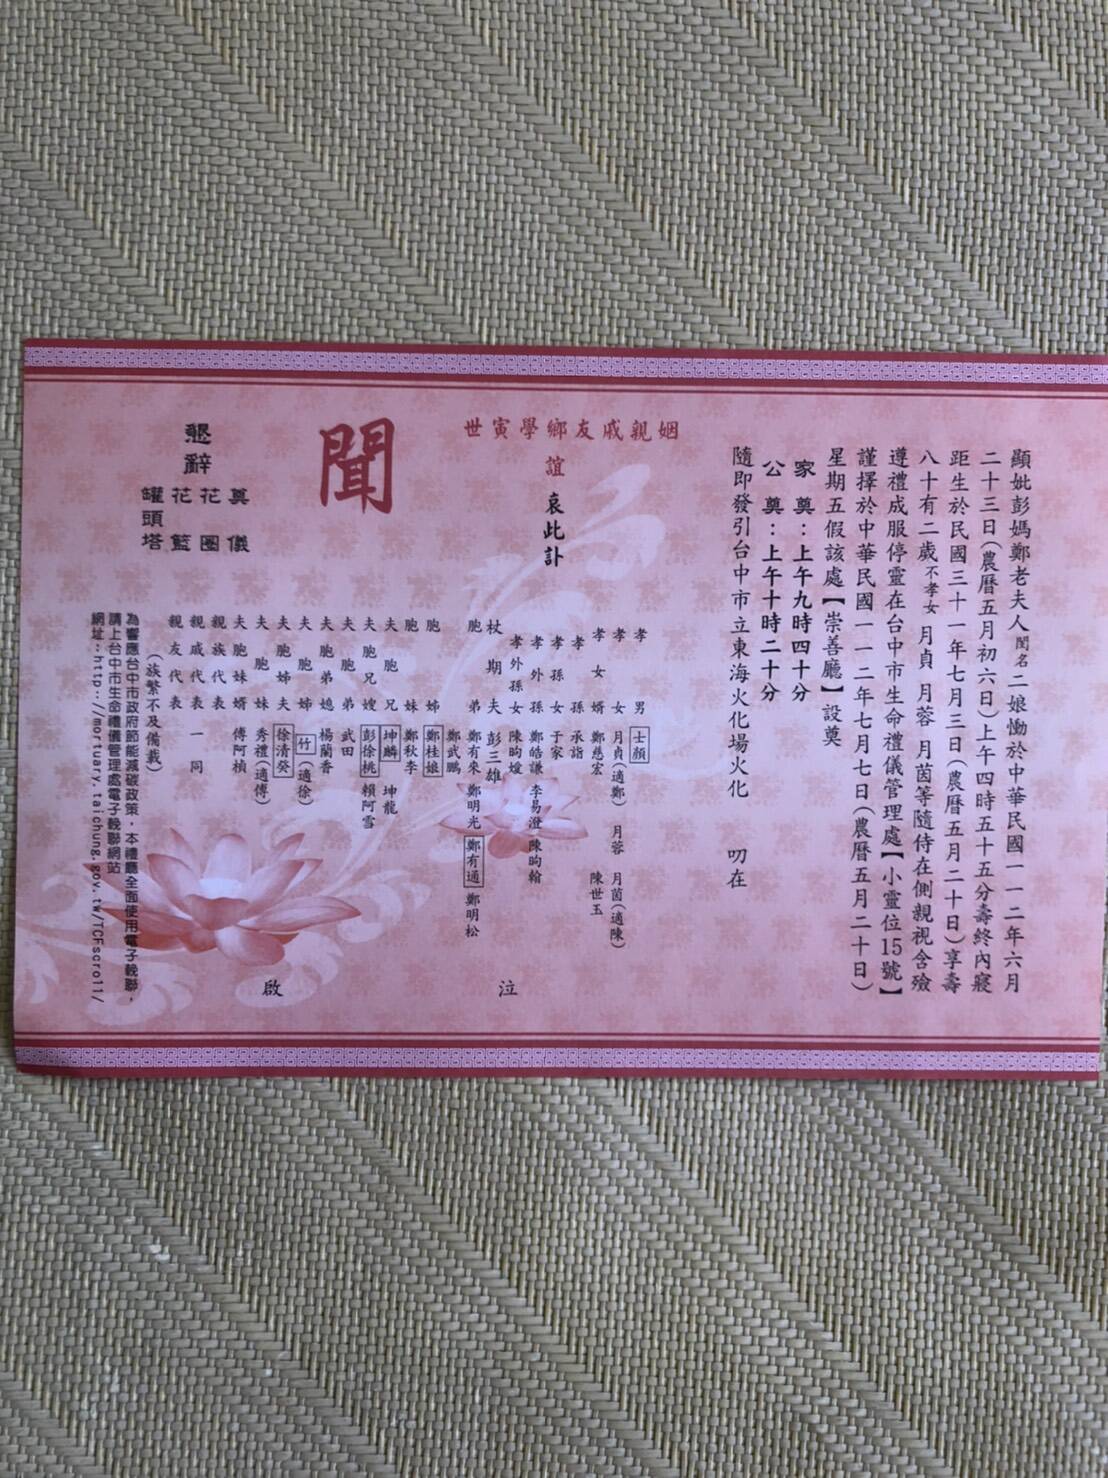 顯妣彭媽鄭老夫人閨名二娘慟於中華民國一一二年六月
二十三日(農曆五月初六日)上午四時五十五分壽終內寢
距生於民國三十一年七月三日(農曆五月二十日)享壽
八十有二歲不孝女月貞 月蓉 月茵等隨侍在側親視含殮
遵禮成服停靈在台中市生命禮儀管理處【小靈位15號】
謹擇於中華民國一一二年七月七日(農曆五月二十日)
星期五假該處【崇善廳】設奠
家奠:上午九時四十分
公奠:上午十時二十分
隨即發引台中市立東海火化場火化 叨在
姻親戚友鄉學寅世
誼 哀此訃
聞
孝男 士顏
孝女 月貞(適鄭) 月蓉 月茵(適陳)
孝女婿 鄭慈宏 陳世玉
孝孫 承詣
孝外孫 于家 鄭皓謙 李易澄 陳昀翰
孝外孫女 陳昀嬡
杖期夫 彭三雄 泣
胞弟 鄭有來 鄭明光 鄭有通 鄭明松
鄭武鵬
胞姊 鄭桂娘
胞妹 鄭秋李
夫胞兄 坤麟 坤龍
夫胞兄嫂 彭徐桃 賴阿雪
夫胞弟 武田
夫胞弟媳 楊蘭香
夫胞姊 竹(適徐)
夫胞姊夫 徐清癸
夫胞妹 秀禮(適傅) 啟
夫胞妹婿 傅阿楨
親族代表
親戚代表 一同
親友代表
(族繁不及備載)
懇辭
奠儀
花圈
花籃
罐頭塔
為響應台中市政府節能減碳政策,本禮廳全面使用電子輓聯,
請上台中市生命禮儀管理處電子輓聯網站
網址:http://mortuary.taichung.gov.tw/TCFscroll/